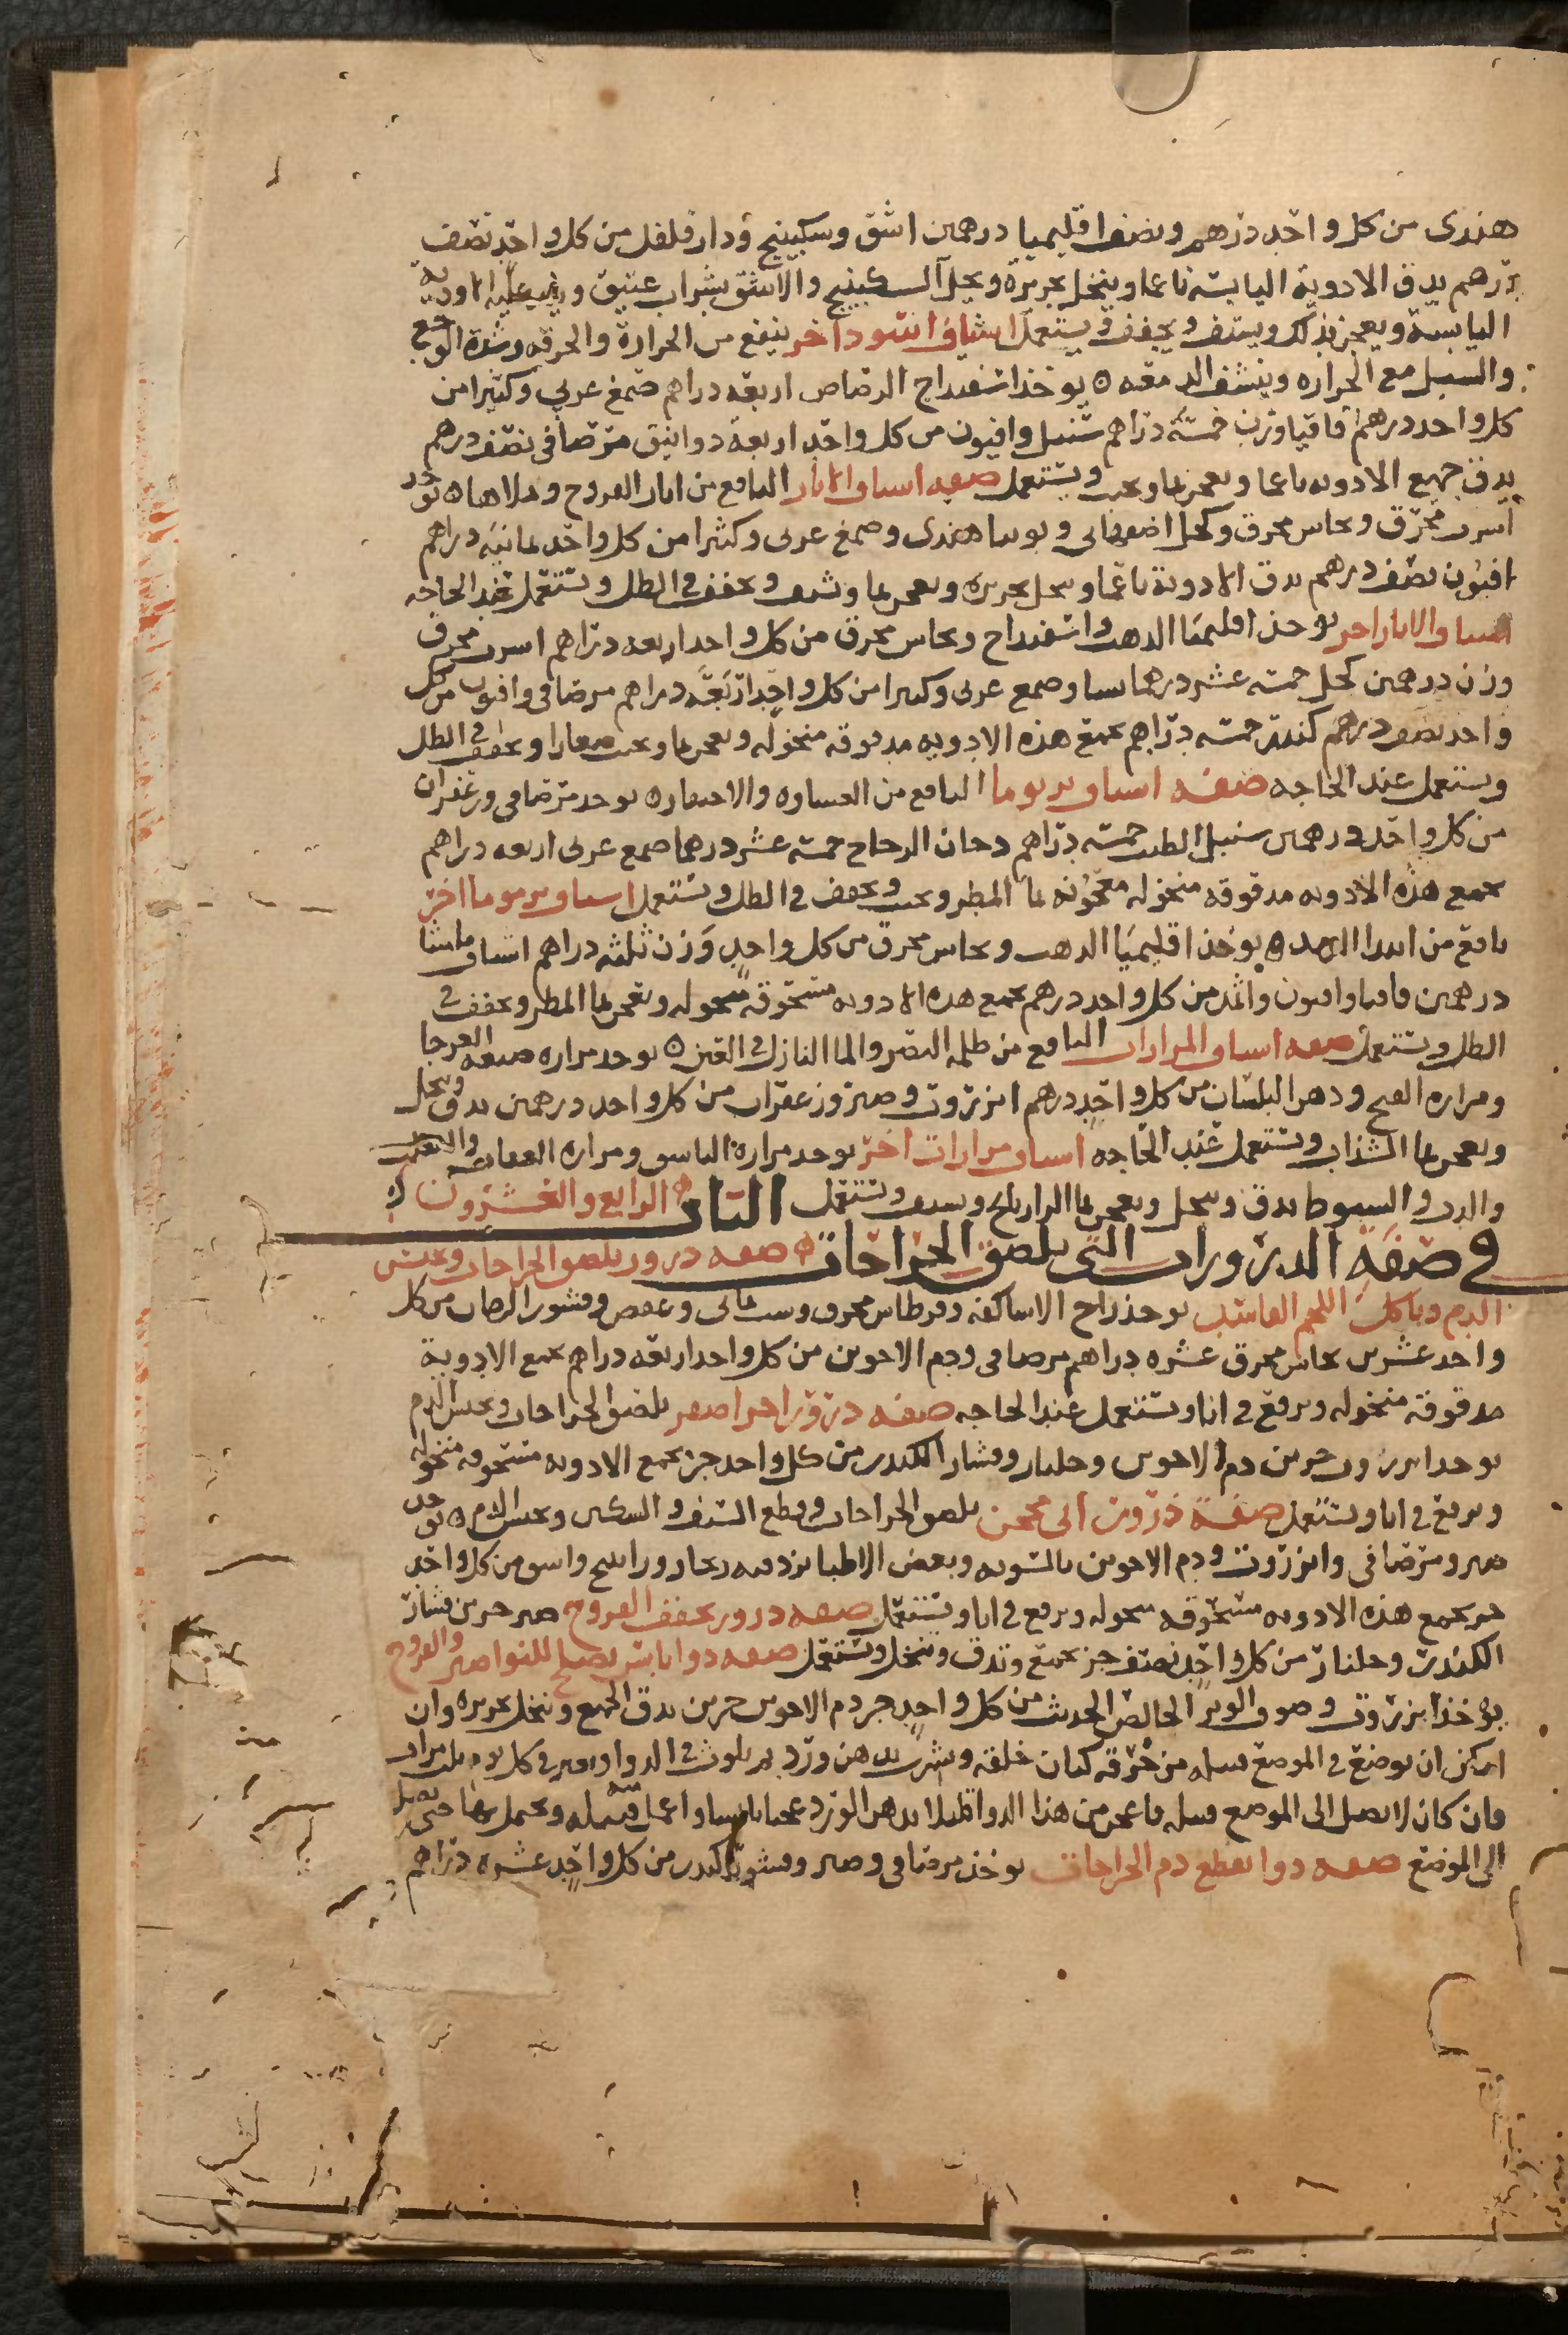 هندى من كل واحد درهم ونصف اقليميا درهمين اشق وسكبينج ودار فلفل من كل واحد نصف
درهم يدق الادوية اليابسه ناعما وينخل بحريرة ويحل السكبينج والاشق بشراب عتيق ويلقى عليه الادويه
اليابسة ويعجن بذلك ويشف ويجفف ويستعمل اشياف اسود اخر ينفع من الحرارة والحرقه وشدة الوجع
والسبل مع الحراره وينشف الدمعه ه يوخذ اسفيداج الرصاص اربعه دراهم صمغ عربي وكثيرا من
كل واحد درهم اقاقيا وزن خمسة دراهم سنبل وافيون من كل واحد اربعة دوانيق مر صافى نصف درهم
يدق جميع الادويه ناعما ويعجن بما ويحبب ويستعمل صفه اسياف الابار النافع من اثار القروح وملاها ه يوخذ
اسرب محرق ونحاس محرق وكحل اصفهانى وتوتيا هندى وصمغ عربى وكثيرا من كل واحد ثمانية دراهم
افيون نصف درهم يدق الادوية ناعما وينخل بحريره ويعجن بما ويشف ويجفف فى الظل ويستعمل عند الحاجه
اسياف الابار اخر يوخذ اقليميا الذهب واسفيداج ونحاس محرق من كل واحد اربعه دراهم اسرب محرق
وزن درهمين كحل خمسة عشر درهما نشا وصمغ عربى وكثيرا من كل واحد اربعة دراهم مر صافى وافيون من كل
واحد نصف درهم كندر خمسه دراهم تجمع هذه الادويه مدقوقه منخوله وتعجن بما وتحبب صغارا وتجفف فى الظل
ويستعمل عند الحاجه صفه اسياف بربوما النافع من الغساوه والانتشاره يوخذ مر صافى وزعفران
من كل واحد درهمين سنبل الطيب خمسة دراهم دخان الزجاج خمسة عشر درهما صمغ عربى اربعه دراهم
تجمع هذه الادويه مدقوقه منخوله معجونه بما المطر وتحبب وتجفف فى الظل وتستعمل اسياف برموما اخر
نافع من ابتدا الرمد ه يوخذ اقليميا الذهب ونحاس محرق من كل واحد وزن ثلثه دراهم اشياف ماميثا
درهمين قاقيا وافيون واثمد من كل واحد درهم تجمع هذه الادويه مسحوقه منخوله وتعجن بما المطر وتجفف فى
الظل وتستعمل صفه اسياف المرارات النافع من ظلمه البصر والما النازل فى العين ه يوخذ مراره ضبعه العرجا
ومراره القبج ودهن البلسان من كل واحد درهم انزروت وصبر وزعفران من كل واحد درهمين يدق وينخل
ويعجن بما السذاب وتستعمل عند الحاجه اسياف مرارات اخر يوخذ مرارة الباشق ومراره العقاب والثعلب
والدب والسبوط يدق وينخل ويعجن بما الرازيانج ويشيف ويستعمل الباب الرابع والعشرون
فى صفة الذرورات التى تلصق الجراحات ه صفه ذرور يلصق الجراحات ويحبس
الدم وياكل اللحم الفاسد يوخذ زاج الاساكفه وقرطاس محرق وشب يمانى وعفص وقشور الرمان من كل
واحد عشرين نحاس محرق عشره دراهم مر صافى ودم الاخوين من كل واحد اربعه دراهم تجمع الادوية
مدقوقه منخوله وترفع فى انا وتستعمل عند الحاجه صفه ذرور اخر اصفر يلصق الجراحات ويحبس الدم
يوخذ انزروت جزين دم الاخوين وجلنار وقشار الكندر من كل واحد جز تجمع الادويه مسحوقه منخوله
وترفع فى انا وتستعمل صفة ذرور ابى محجن يلصق الجراحات وقطع السيف والسكين ويحبس الدم ه يوخذ
صبر ومر صافى وانزروت ودم الاخوين بالسويه وبعض الاطبا يزد فيه زنجار وراسخ واسو من كل واحد
جز تجمع هذه الادويه مسحوقه منخوله وترفع فى انا وتستعمل صفه ذرور يجفف القروح صبر جزين قشار
الكندر وجلنار من كل واحد نصف جز تجمع وتدق وتنخل وتستعمل صفه دوا يابس يصلح للنواصير والقروح
يوخذ انزروت وصوف الوبر الخالص الحديث من كل واحد جز دم الاخوين جزين يدق الجميع وينخل بحريره وان
امكن ان توضع فى الموضع فتيله من خرقه كتان خلقه وتشرب بدهن ورد ثم تلوث فى الدوا وتغير فى كل يوم ثلث مرات
فان كان لا يصل الى الموضع فتيله فاعجن من هذا الدوا قليلا بدهن الورد عجنا يابسا واعمل منه فتيله وتحمل بها حتى تصل
الى الموضع صفه دوا يقطع دم الجراحات يوخذ مر صافى وصبر وقشور الكندر من كل واحد عشره دراهم